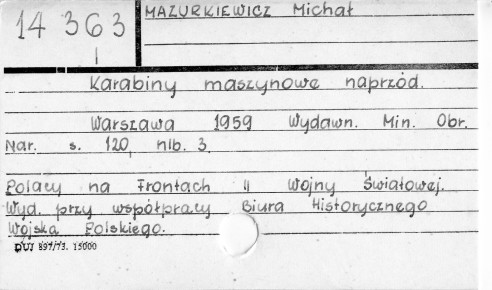 14 363
I
MAZURKIEWICZ Michał
Karabiny maszynowe naprzód.
Warszawa 1959 Wydawn. Min. Obr.
Nar. s. 120, nlb. 3.
Polacy na Frontach II Wojny Światowej.
Wyd. przy współpracy Biura Historycznego
Wojska Polskiego.
DUJ 897/73. 15000